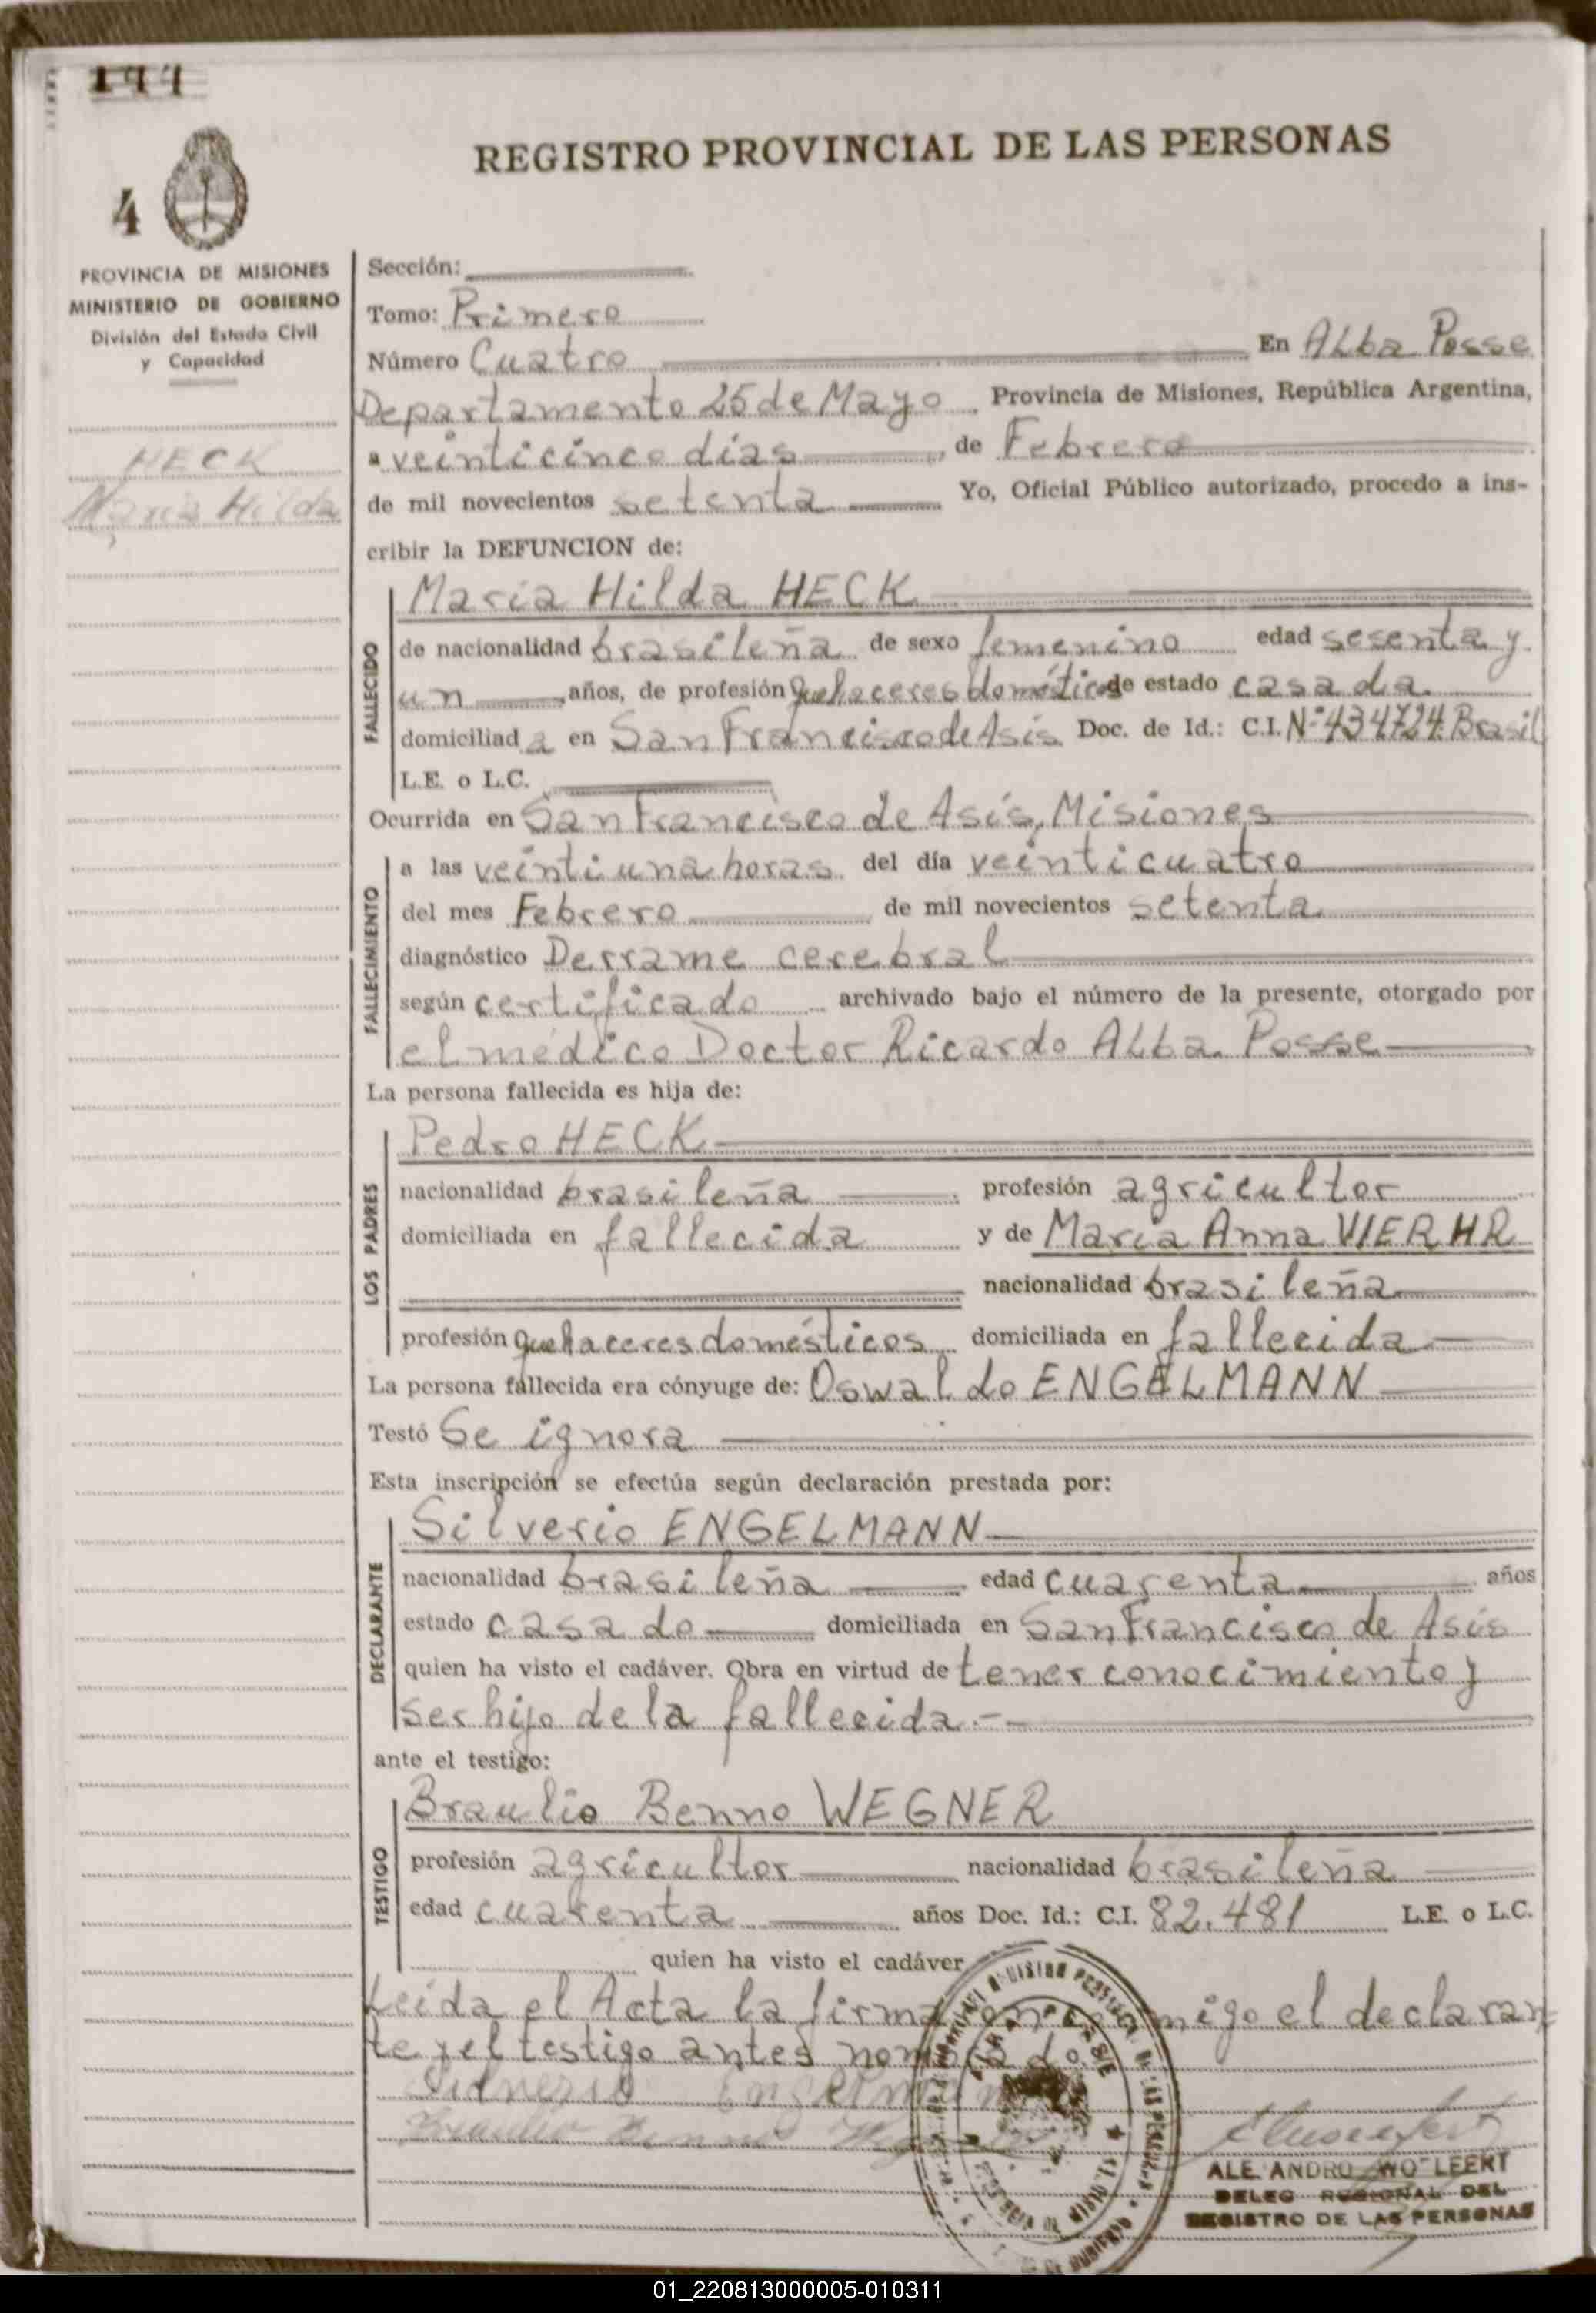 144
REGISTRO PROVINCIAL DE LAS PERSONAS
4
PROVINCIA DE MISIONES
MINISTERIO DE GOBIERNO
División del Estado Civil
y Capacidad
HECK
Maria Hilda
Sección:
Tomo: Primero
Número Cuatro En Alba Posse
Departamento 25 de Mayo Provincia de Misiones, República Argentina,
a veinticinco días, de Febrero
de mil novecientos setenta Yo, Oficial Público autorizado, procedo a ins-
cribir la DEFUNCION de:
FALLECIDO
Maria Hilda HECK
de nacionalidad brasileña de sexo femenino edad sesenta y
un años, de profesión Quehaceres domésticos de estado casada
domiciliad a en San Francisco de Asís Doc. de Id.: C.I. Nº 434724 Brasil
L.E. o L.C.
Ocurrida en San Francisco de Asís, Misiones
FALLECIMIENTO
a las veintiuna horas del día veinticuatro
del mes Febrero de mil novecientos setenta
diagnóstico Derrame cerebral
según certificado archivado bajo el número de la presente, otorgado por
el médico Doctor Ricardo Alba Posse
La persona fallecida es hija de:
LOS PADRES
Pedro HECK
nacionalidad brasileña profesión agricultor
domiciliada en fallecida y de Maria Anna VIERHR
nacionalidad brasileña
profesión Quehaceres domésticos domiciliada en fallecida
La persona fallecida era cónyuge de: Oswaldo ENGELMANN
Testó Se ignora
Esta inscripción se efectúa según declaración prestada por:
DECLARANTE
Silverio ENGELMANN
nacionalidad brasileña edad cuarenta años
estado casado domiciliada en San Francisco de Asís
quien ha visto el cadáver. Obra en virtud de tener conocimiento y
ser hijo de la fallecida.-
ante el testigo:
TESTIGO
Braulio Benno WEGNER
profesión agricultor nacionalidad brasileña
edad cuarenta años Doc. Id.: C.I. 82.481 L.E. o L.C.
quien ha visto el cadáver
Leida el Acta la firman conmigo el declaran
te y el testigo antes nombrado.
ALEJANDRO WOLLEERT
DELEG REGIONAL DEL
REGISTRO DE LAS PERSONAS
01_220813000005-010311